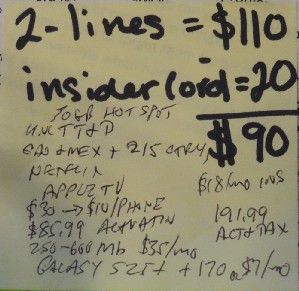 2-lines = $110
insider Cord = 20
$90
30GB HOT SPOT
UNL TT+D
CAD+MEX + 215 CTRY
NETFLIX
APPLE TV
$18/mo
$30 → $10/PHONE
191.99
$85.99 ACTVATN
ACT+TAX
250-600 Mb $35/mo
GALAXY S25+ +170 $7/mo